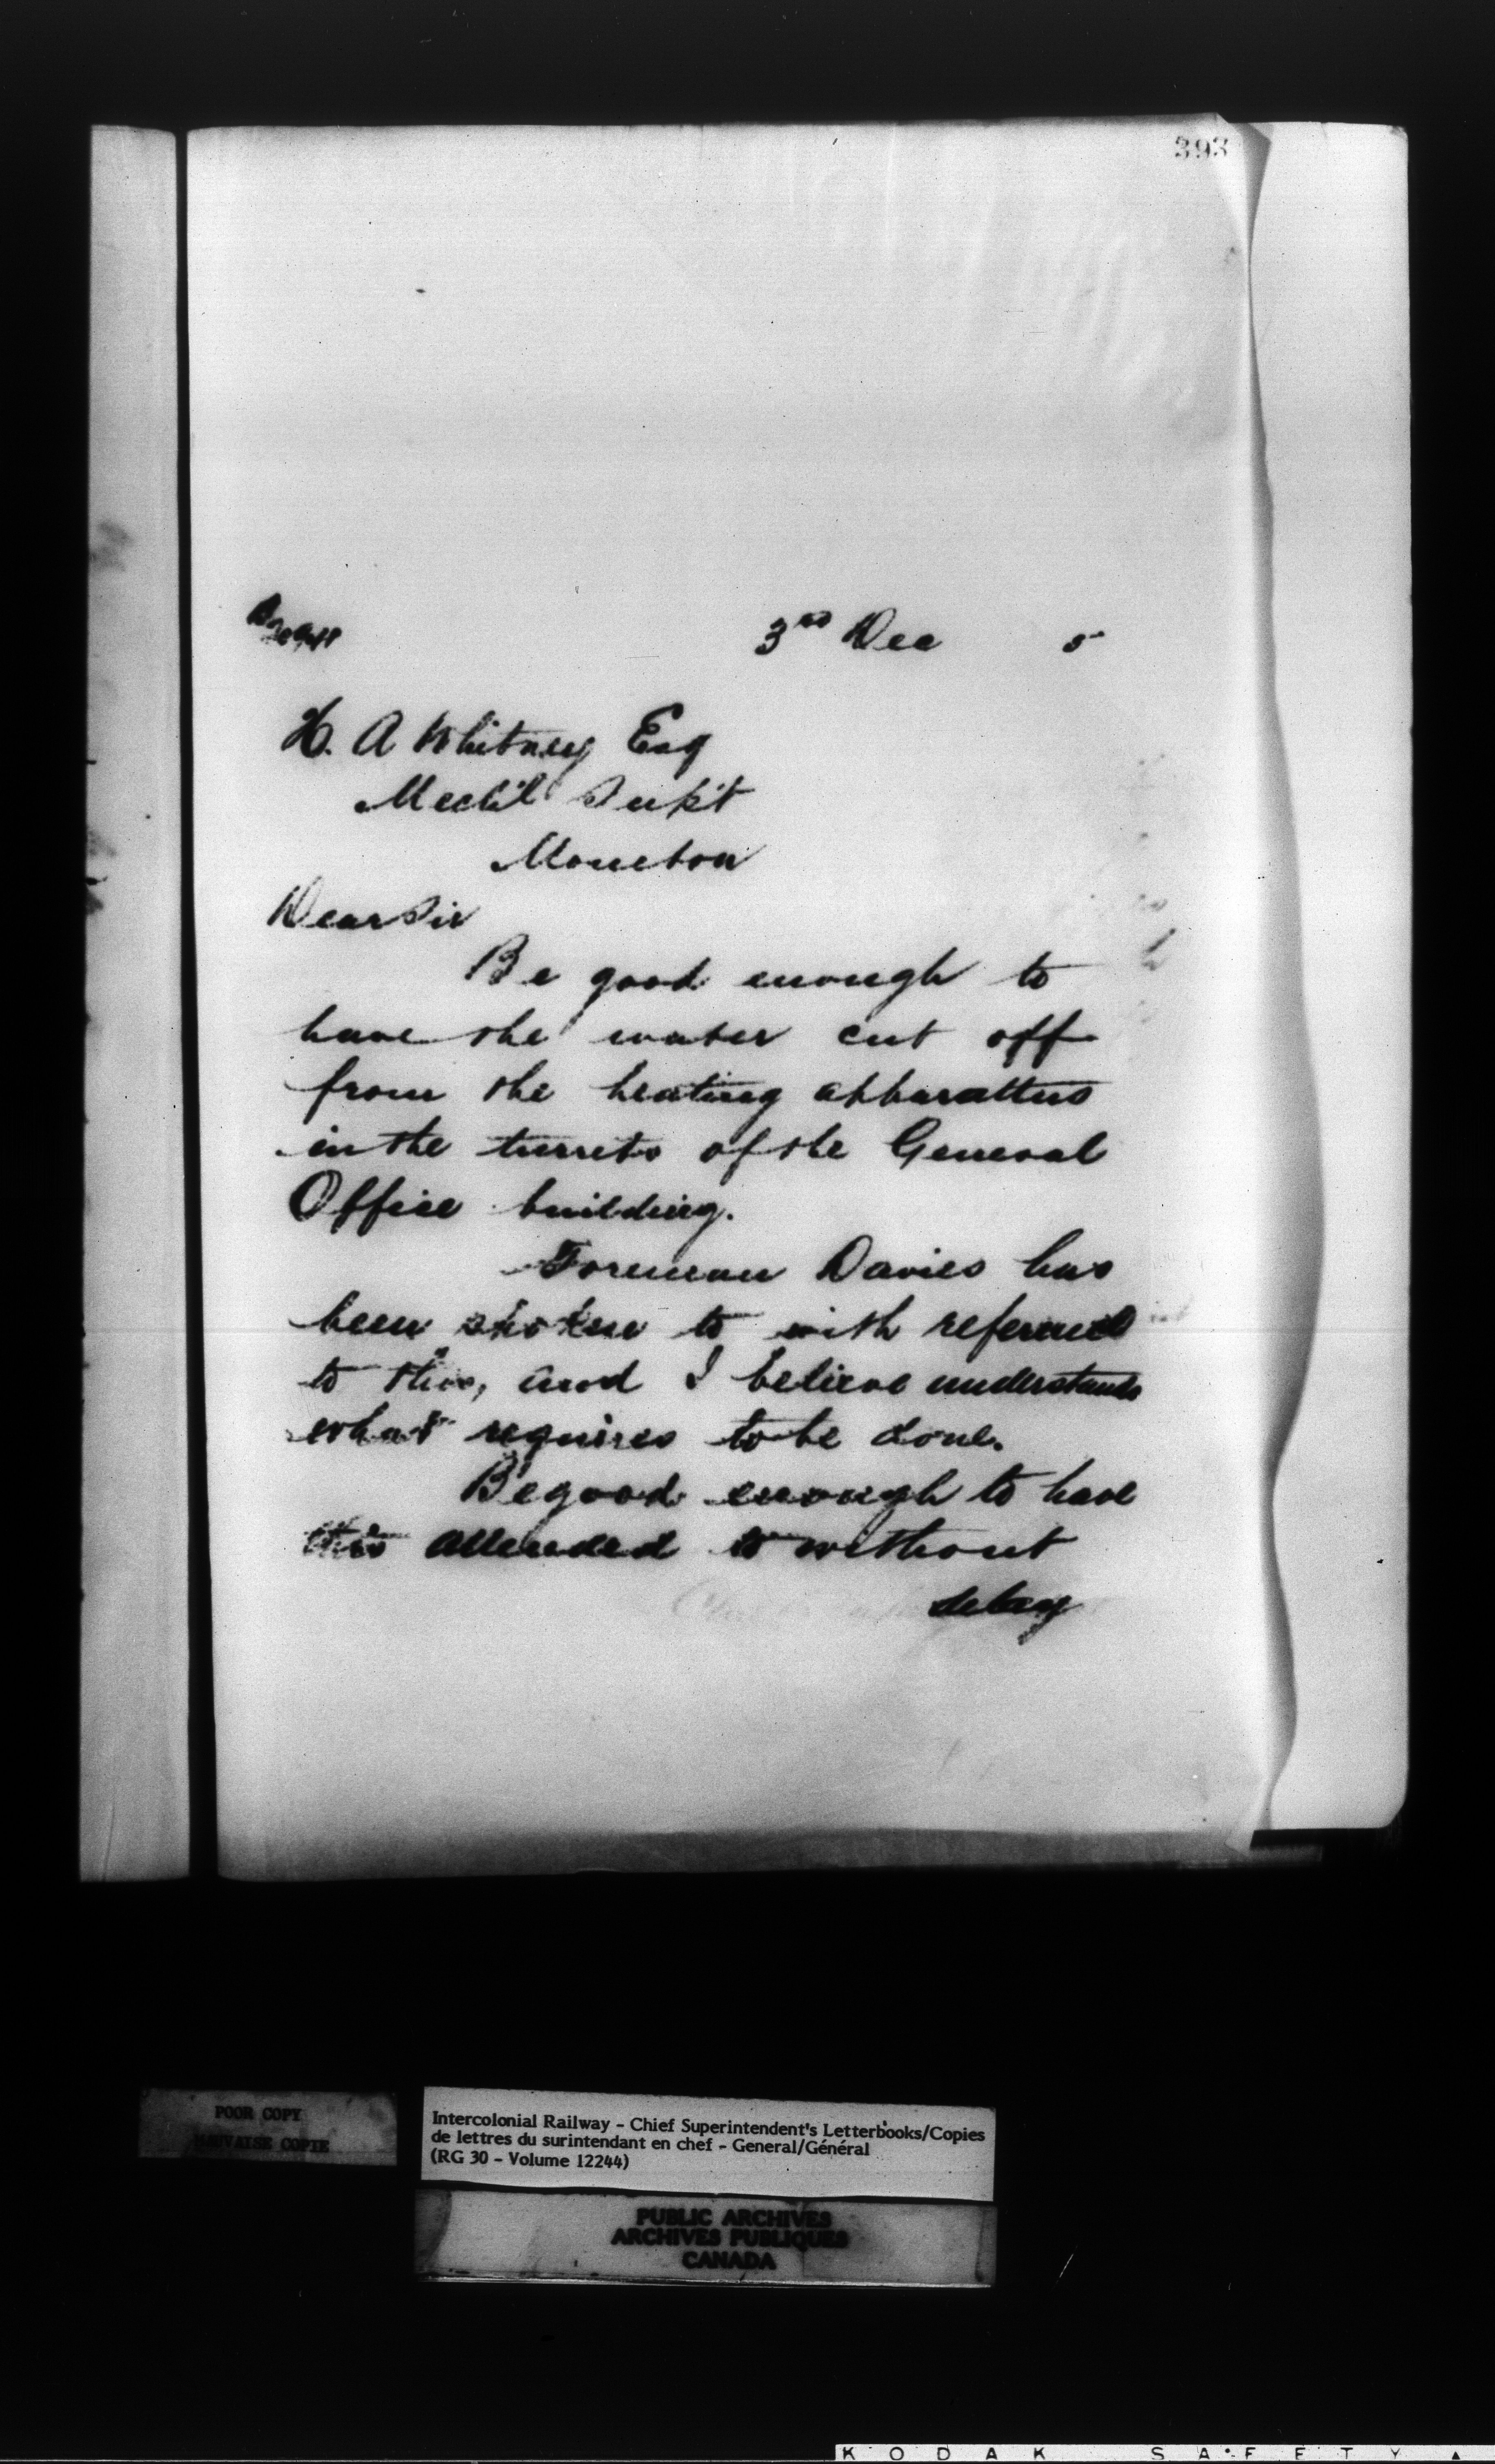 393
3rd Dec 5
H. A Whitney Esq
Mech'l Supt
Moncton
Dear Sir
Be good enough to
have the water cut off
from the heating apparattus
in the turrets of the General
Office building.
Foreman Davies has
been spoken to with reference
to this, and I believe understands
what requires to be done.
Be good enough to have
this attended to without
delay
POOR COPY
MAUVAISE COPIE
Intercolonial Railway - Chief Superintendent's Letterbooks/Copies
de lettres du surintendant en chef - General/Général
(RG 30 - Volume 12244)
PUBLIC ARCHIVES
ARCHIVES PUBLIQUES
CANADA
KODAK SAFETY